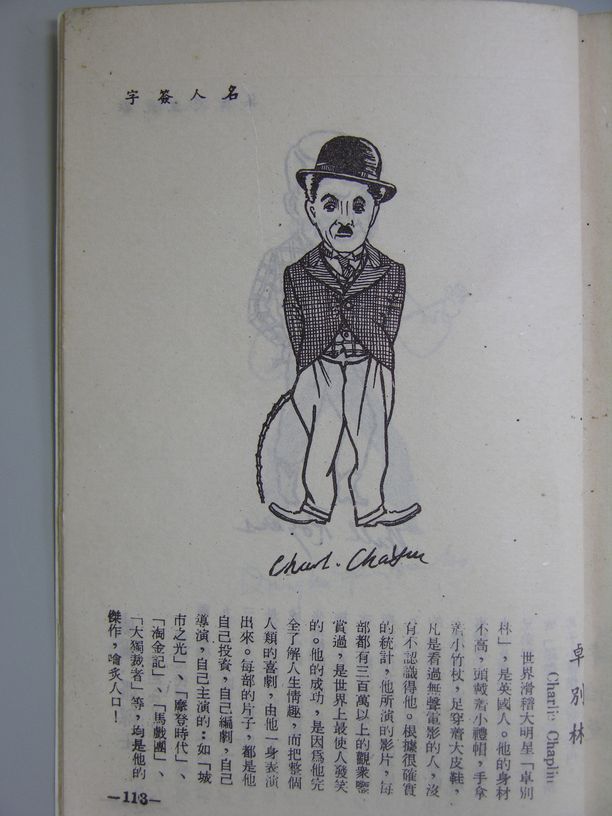 名人簽字
Charl. Chaplin
卓別林
Charlie Chaplin
世界滑稽大明星「卓別
林」，是英國人。他的身材
不高，頭戴着小禮帽，手拿
着小竹杖，足穿着大皮鞋，
凡是看過無聲電影的人，沒
有不認識得他。根據很確實
的統計，他所演的影片，每
部都有三百萬以上的觀衆鑒
賞過，是世界上最使人發笑
的。他的成功，是因爲他完
全了解人生情趣，而把整個
人類的喜劇，由他一身表演
出來。每部的片子，都是他
自己投資，自己編劇，自己
導演，自己主演的：如「城
市之光」、「摩登時代」、
「淘金記」、「馬戲團」、
「大獨裁者」等，均是他的
傑作，噲炙人口！
—113—